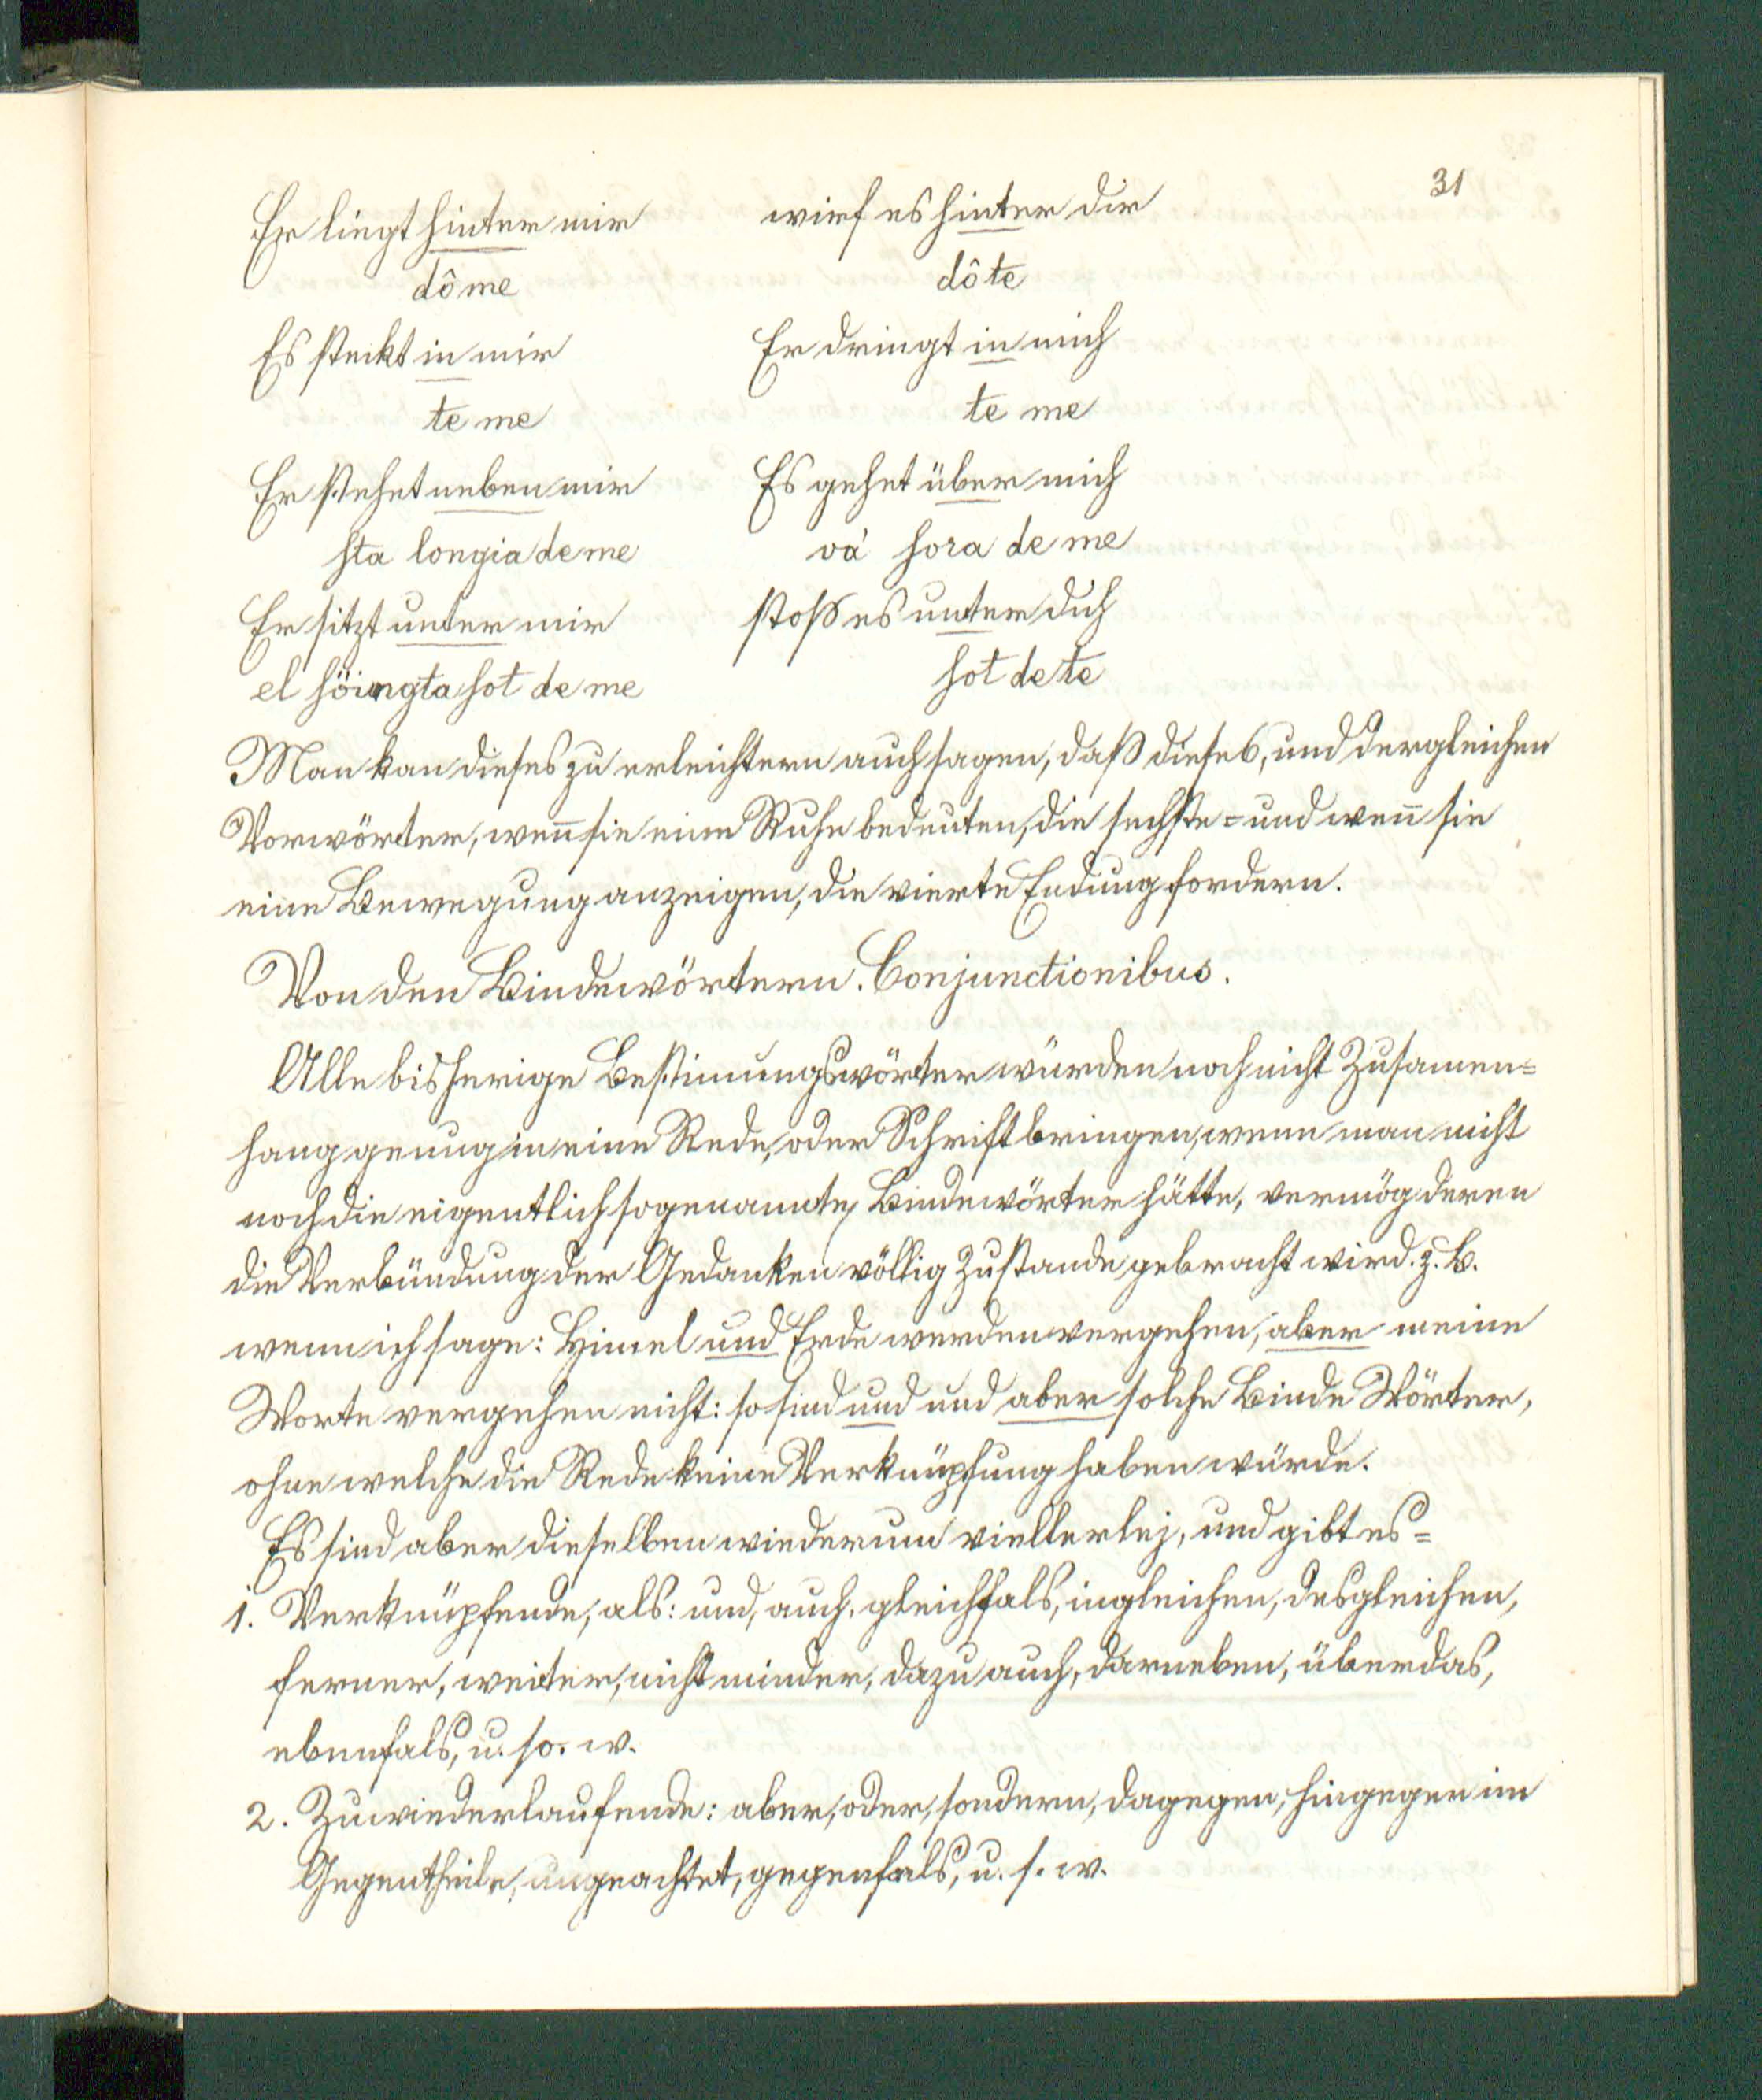 31
Er liegt hinter mir wirf es hinter dir
dô me dô te
Es steckt in mir Er dringt in mich
te me te me
Er stehet neben mir Es gehet über mich
sta longia de me va' sora de me
Er sitzt unter mir stoß es unter dich
el söingta sot de me sot de te
Man kan dieses zu erleichtern auch sagen, daß diese 6, und dergleichen
Vorwörter, weñ sie eine Ruhe bedeuten, die sechste = und weñ sie
eine Bewegung anzeigen, die vierte Endung fordern.
Von den Bindewörtern. Conjunctionibus.
Alle bisherige Bestimungswörter würden noch nicht Zusamen=
hang genug in eine Rede, oder Schrift bringen, wenn man nicht
noch die eigentlich sogenannte Bindewörter hätte, vermög deren
die Verbündung der Gedanken völlig Zustande gebracht wird. z. B.
wenn ich sage: Himel und Erde werden vergehen, aber meine
Worte vergehen nicht: so sind und und aber solche Binde Wörter,
ohne welche die Rede keine Verknüpfung haben würde.
Es sind aber dieselben wiederum viellerlej, und gibt es =
1. Verknüpfende, als: und, auch, gleichfals, ingleichen, desgleichen,
ferner, weiter, nicht minder, dazu auch, darneben, überdas,
ebenfals, u. so. w.
2. Zuwiederlaufende: aber, oder, sondern, dagegen, hingegen im
Gegentheile, ungeachtet, gegenfals, u. s. w.